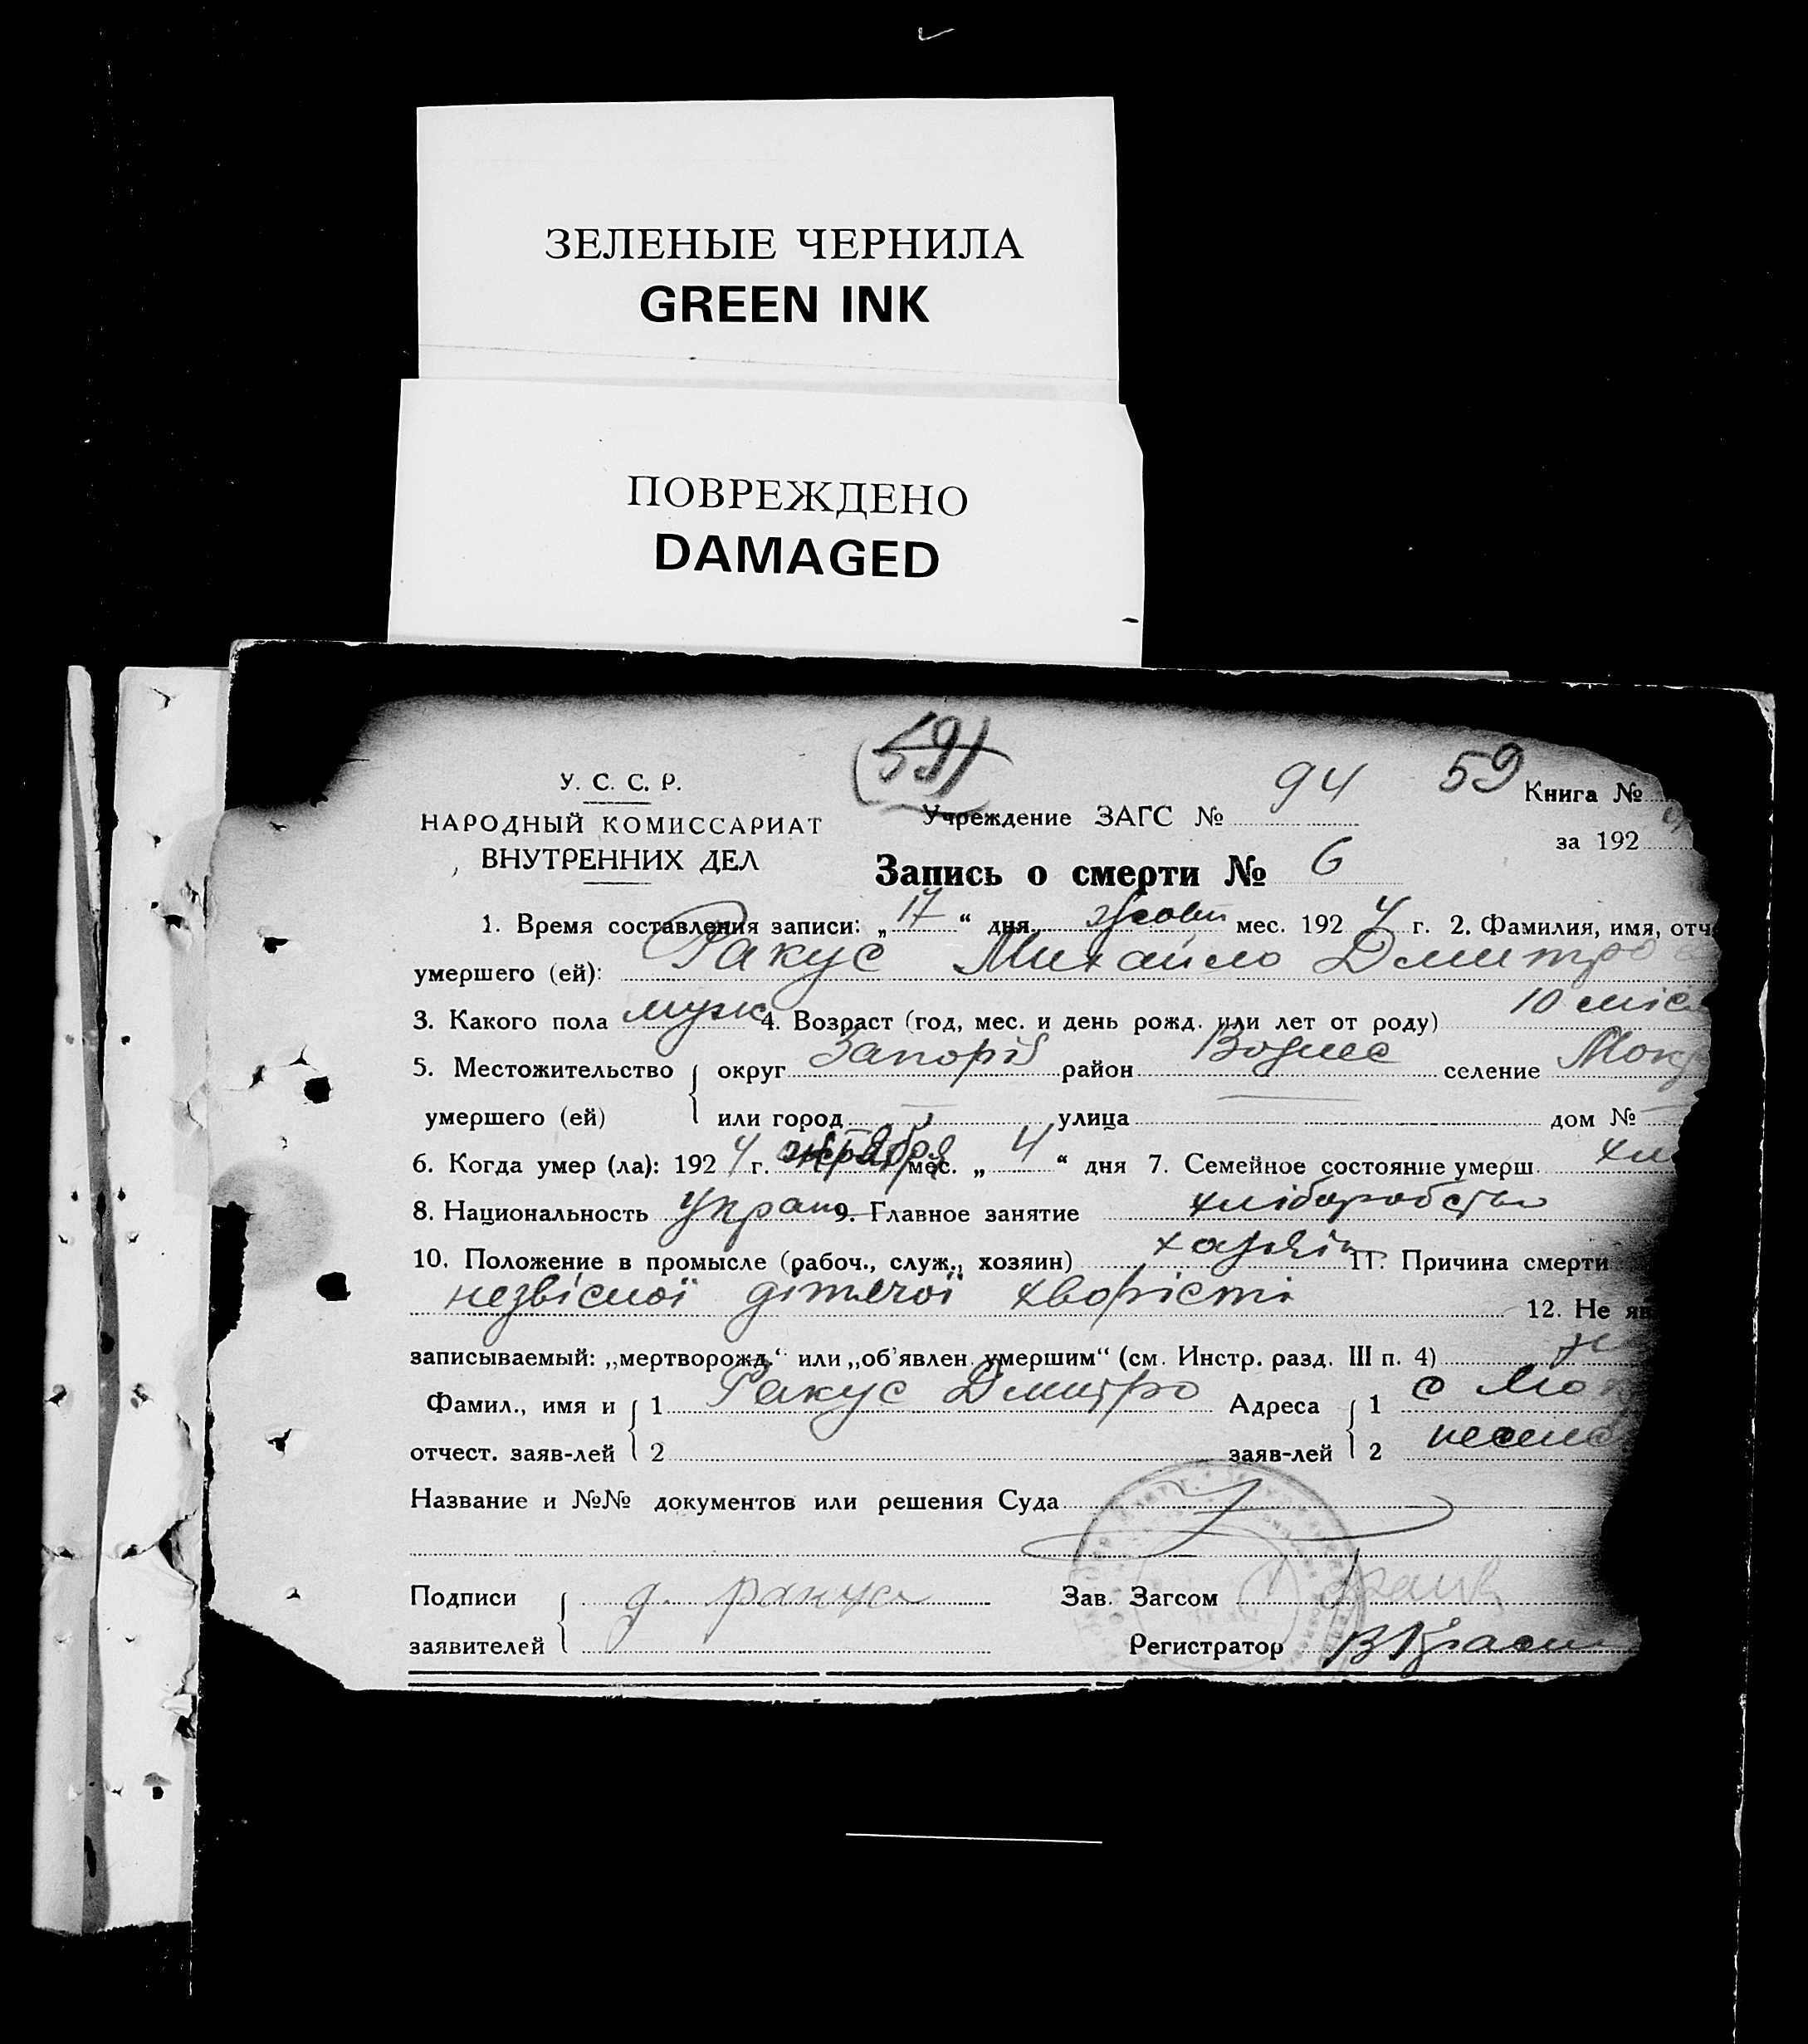 ЗЕЛЕНЫЕ ЧЕРНИЛА
GREEN INK
ПОВРЕЖДЕНО
DAMAGED
(59)
У. С. С. Р.
НАРОДНЫЙ КОМИССАРИАТ
ВНУТРЕННИХ ДЕЛ
Учреждение ЗАГС № 94
59 Книга №
за 192
Запись о смерти № 6
1. Время составления записи: „17“ дня жовт мес. 1924 г. 2. Фамилия, имя, отч
умершего (ей): Ракус Михайло Дмитро
3. Какого пола муж 4. Возраст (год, мес. и день рожд. или лет от роду) 10 міс
5. Местожительство округ Запоріз район Вознес селение Мок
умершего (ей) или город — улица — дом №
6. Когда умер (ла): 1924 г. мес. „4“ дня 7. Семейное состояние умерш.
8. Национальность Украин 9. Главное занятие хліборобство
10. Положение в промысле (рабоч., служ., хозяин) 11. Причина смерти
незвісної дітячої хворісті 12. Не яв
записываемый: „мертворожд.“ или „об'явлен умершим“ (см. Инстр. разд. III п. 4)
Фамил., имя и 1 Ракус Дмитро Адреса 1 с Мок
отчест. заяв-лей 2 заяв-лей 2
Название и №№ документов или решения Суда
Подписи Д. Ракус Зав. Загсом
заявителей Регистратор